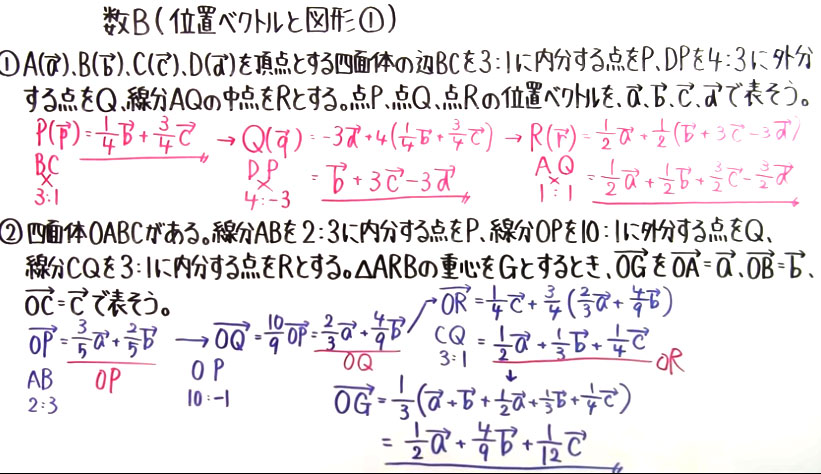 数B(位置ベクトルと図形①)
①A(a→)、B(b→)、C(c→)、D(d→)を頂点とする四面体の辺BCを3:1に内分する点をP、DPを4:3に外分
する点をQ、線分AQの中点をRとする。点P、点Q、点Rの位置ベクトルを、a→、b→、c→、d→で表そう。
P(p→)=1/4b→+3/4c→ → Q(q→)=-3d→+4(1/4b→+3/4c→) → R(r→)=1/2a→+1/2(b→+3c→-3d→)
BC × 3:1 DP × 4:-3 =b→+3c→-3d→ AQ × 1:1 =1/2a→+1/2b→+3/2c→-3/2d→
②四面体OABCがある。線分ABを2:3に内分する点をP、線分OPを10:1に外分する点をQ、
線分CQを3:1に内分する点をRとする。△ARBの重心をGとするとき、OG→をOA→=a→、OB→=b→、
OC→=c→で表そう。
OP→=3/5a→+2/5b→ → OQ→=10/9OP→=2/3a→+4/9b→ → OR→=1/4c→+3/4(2/3a→+4/9b→)
AB 2:3 OP OP 10:-1 OQ CQ 3:1 =1/2a→+1/3b→+1/4c→ OR
↓
OG→=1/3(a→+b→+1/2a→+1/3b→+1/4c→)
=1/2a→+4/9b→+1/12c→